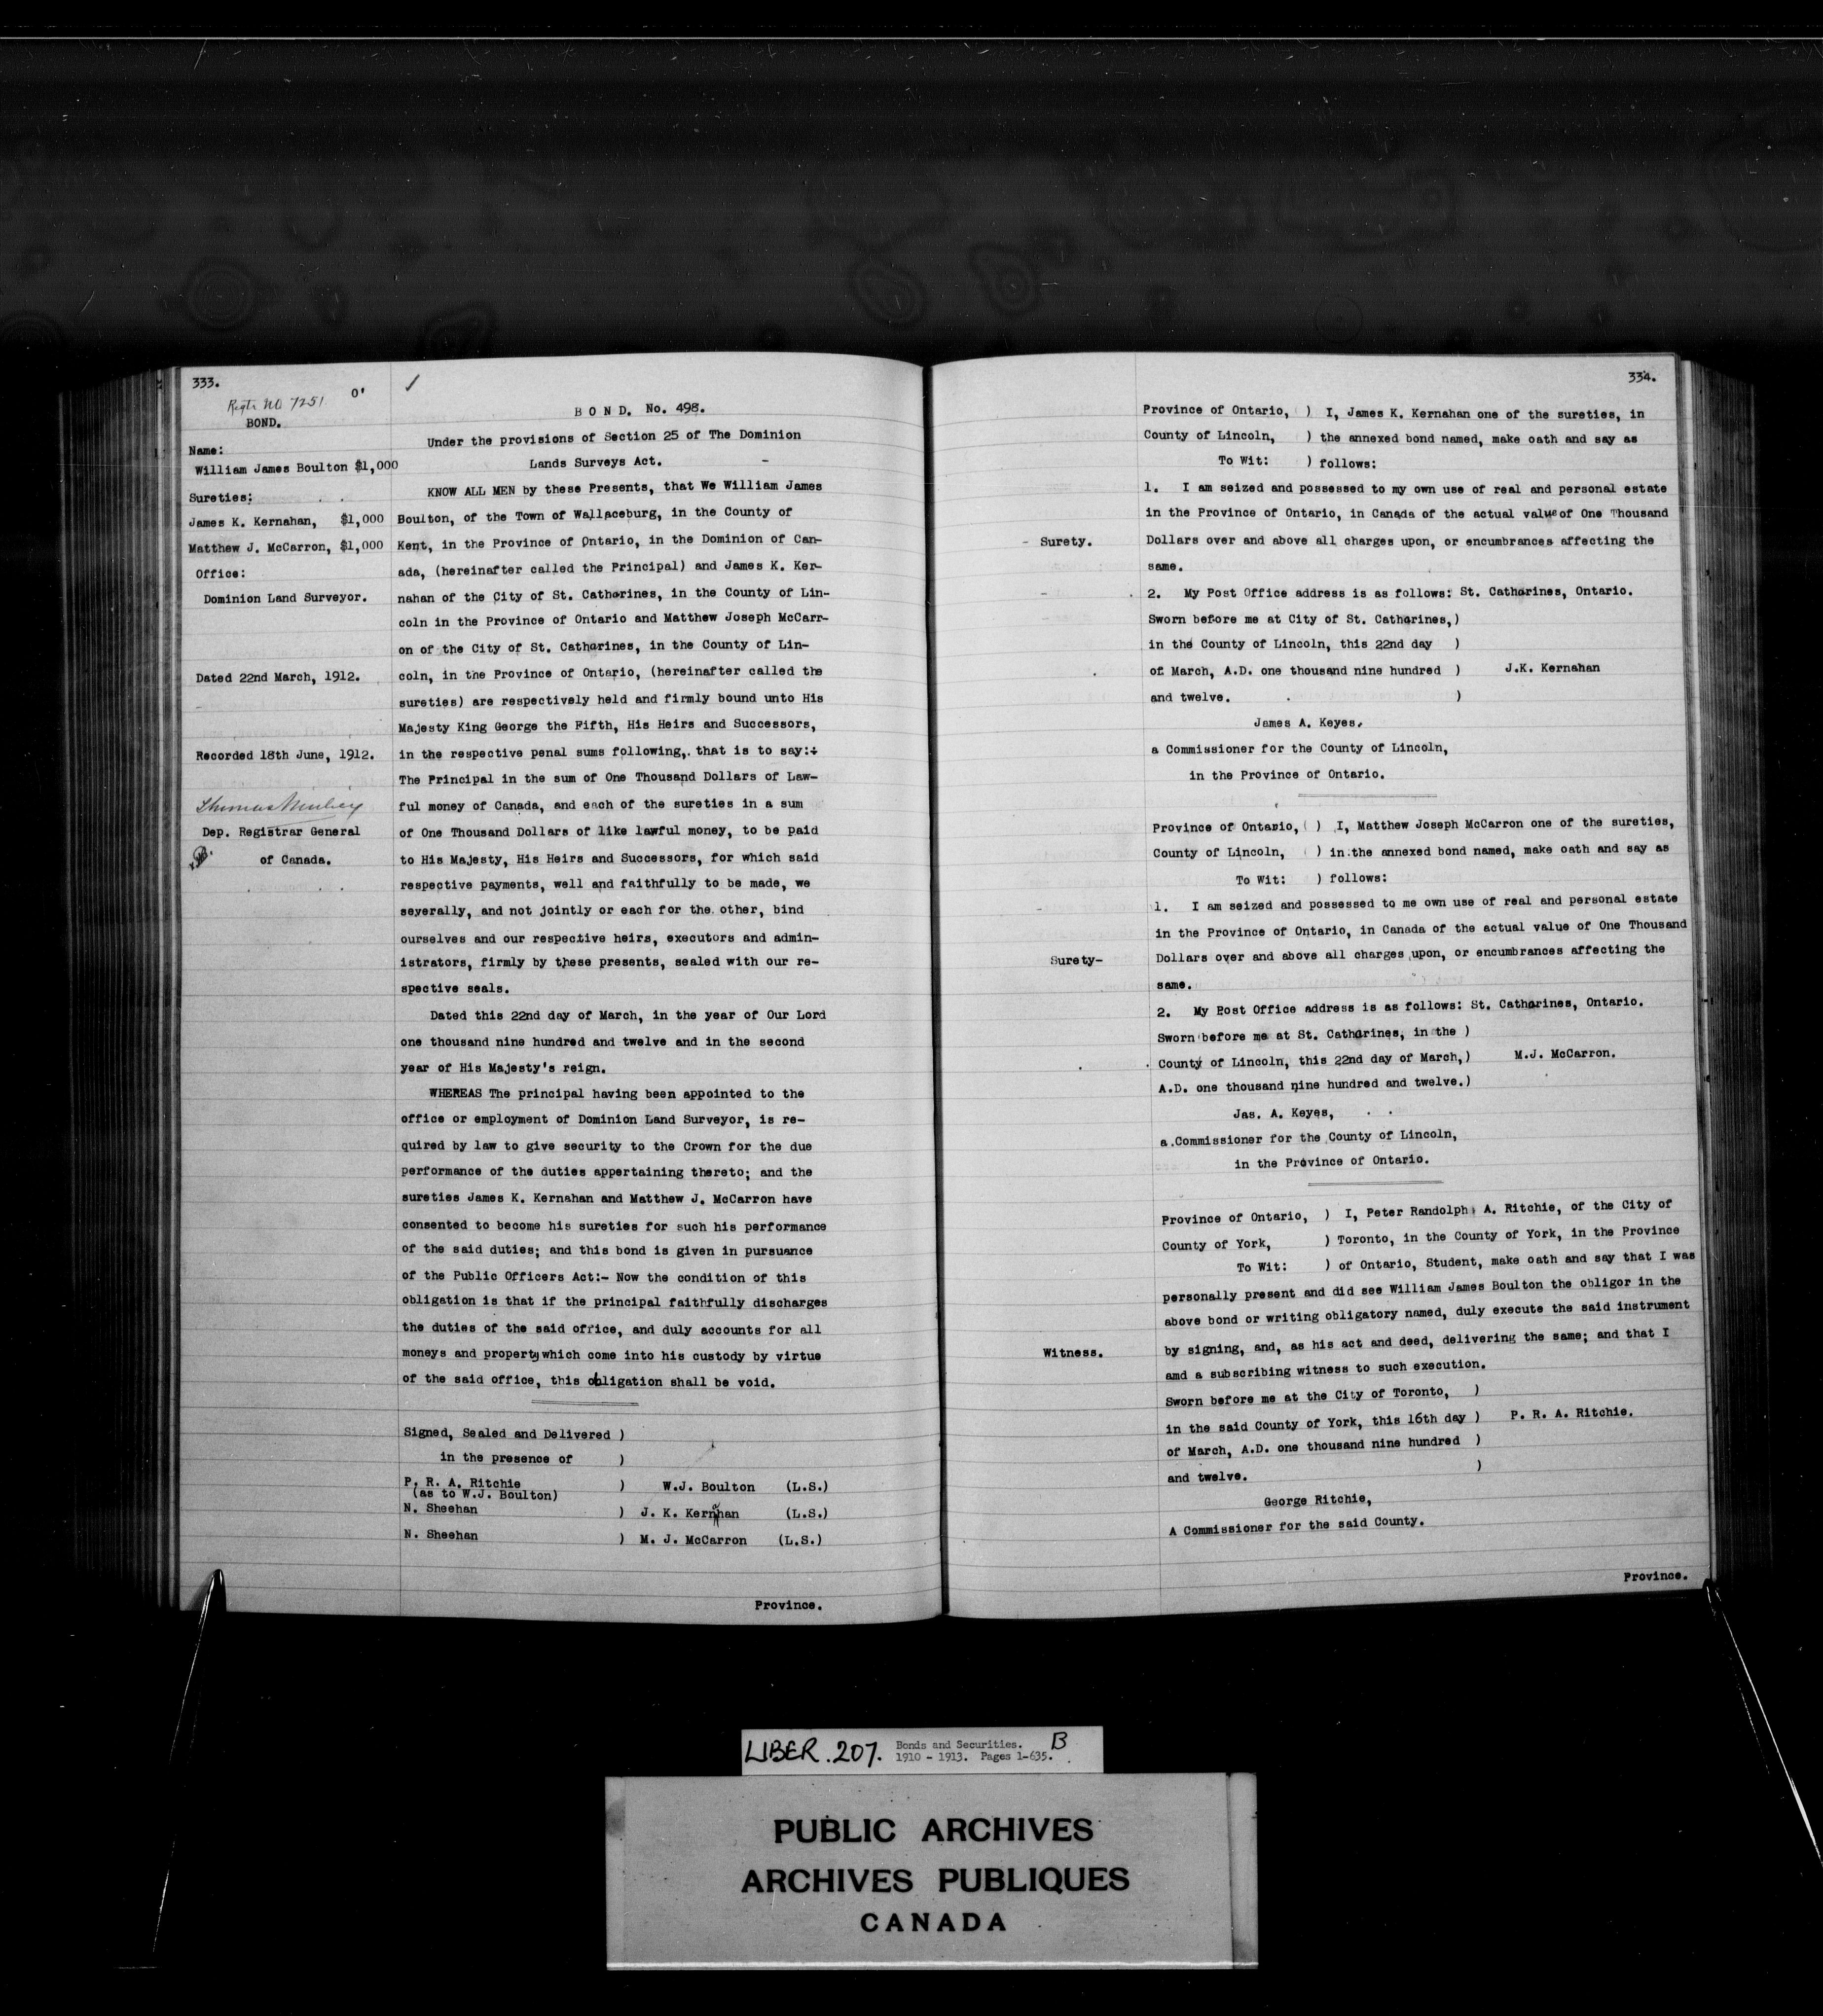 333.
Regtr NO 7251
O'
BOND.
Name:
William James Boulton $1,000
Sureties:
James K. Kernahan, $1,000
Matthew J. McCarron, $1,000
Office:
Dominion Land Surveyor.
Dated 22nd March, 1912.
Recorded 18th June, 1912.
Thomas Mulvey
Dep. Registrar General
of Canada.
B O N D. No. 498.
Under the provisions of Section 25 of The Dominion
Lands Surveys Act. -
KNOW ALL MEN by these Presents, that We William James
Boulton, of the Town of Wallaceburg, in the County of
Kent, in the Province of Ontario, in the Dominion of Can-
ada, (hereinafter called the Principal) and James K. Ker-
nahan of the City of St. Catharines, in the County of Lin-
coln in the Province of Ontario and Matthew Joseph McCarr-
on of the City of St. Catharines, in the County of Lin-
coln, in the Province of Ontario, (hereinafter called the
sureties) are respectively held and firmly bound unto His
Majesty King George the Fifth, His Heirs and Successors,
in the respective penal sums following, that is to say:-
The Principal in the sum of One Thousand Dollars of Law-
ful money of Canada, and each of the sureties in a sum
of One Thousand Dollars of like lawful money, to be paid
to His Majesty, His Heirs and Successors, for which said
respective payments, well and faithfully to be made, we
severally, and not jointly or each for the other, bind
ourselves and our respective heirs, executors and admin-
istrators, firmly by these presents, sealed with our re-
spective seals.
Dated this 22nd day of March, in the year of Our Lord
one thousand nine hundred and twelve and in the second
year of His Majesty's reign.
WHEREAS The principal having been appointed to the
office or employment of Dominion Land Surveyor, is re-
quired by law to give security to the Crown for the due
performance of the duties appertaining thereto; and the
sureties James K. Kernahan and Matthew J. McCarron have
consented to become his sureties for such his performance
of the said duties; and this bond is given in pursuance
of the Public Officers Act:- Now the condition of this
obligation is that if the principal faithfully discharges
the duties of the said office, and duly accounts for all
moneys and property which come into his custody by virtue
of the said office, this obligation shall be void.
Signed, Sealed and Delivered )
in the presence of )
P. R. A. Ritchie ) W.J. Boulton (L.S.)
(as to W.J. Boulton)
N. Sheehan ) J. K. Kernahan (L.S.)
N. Sheehan ) M. J. McCarron (L.S.)
Province.
334.
Province of Ontario, ) I, James K. Kernahan one of the sureties, in
County of Lincoln, ) the annexed bond named, make oath and say as
To Wit: ) follows:
1. I am seized and possessed to my own use of real and personal estate
in the Province of Ontario, in Canada of the actual value of One Thousand
- Surety. Dollars over and above all charges upon, or encumbrances affecting the
same.
2. My Post Office address is as follows: St. Catharines, Ontario.
Sworn before me at City of St. Catharines,)
in the County of Lincoln, this 22nd day )
of March, A.D. one thousand nine hundred ) J.K. Kernahan
and twelve. )
James A. Keyes,
a Commissioner for the County of Lincoln,
in the Province of Ontario.
Province of Ontario, ) I, Matthew Joseph McCarron one of the sureties,
County of Lincoln, ) in the annexed bond named, make oath and say as
To Wit: ) follows:
1. I am seized and possessed to me own use of real and personal estate
in the Province of Ontario, in Canada of the actual value of One Thousand
Surety- Dollars over and above all charges upon, or encumbrances affecting the
same.
2. My Post Office address is as follows: St. Catharines, Ontario.
Sworn before me at St. Catharines, in the )
County of Lincoln, this 22nd day of March,) M.J. McCarron.
A.D. one thousand nine hundred and twelve.)
Jas. A. Keyes,
a Commissioner for the County of Lincoln,
in the Province of Ontario.
Province of Ontario, ) I, Peter Randolph A. Ritchie, of the City of
County of York, ) Toronto, in the County of York, in the Province
To Wit: ) of Ontario, Student, make oath and say that I was
personally present and did see William James Boulton the obligor in the
above bond or writing obligatory named, duly execute the said instrument
Witness. by signing, and, as his act and deed, delivering the same; and that I
amd a subscribing witness to such execution.
Sworn before me at the City of Toronto, )
in the said County of York, this 16th day ) P. R. A. Ritchie.
of March, A.D. one thousand nine hundred )
and twelve. )
George Ritchie,
A Commissioner for the said County.
Province.
LIBER. 207. Bonds and Securities. B
1910 - 1913. Pages 1-635.
PUBLIC ARCHIVES
ARCHIVES PUBLIQUES
CANADA